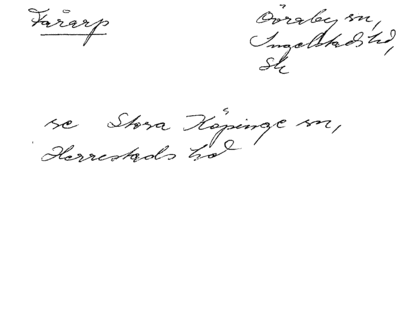 Fårarp
Övraby sn,
Ingelstads hd,
Sk
se Stora Köpinge sn,
Herrestads hd